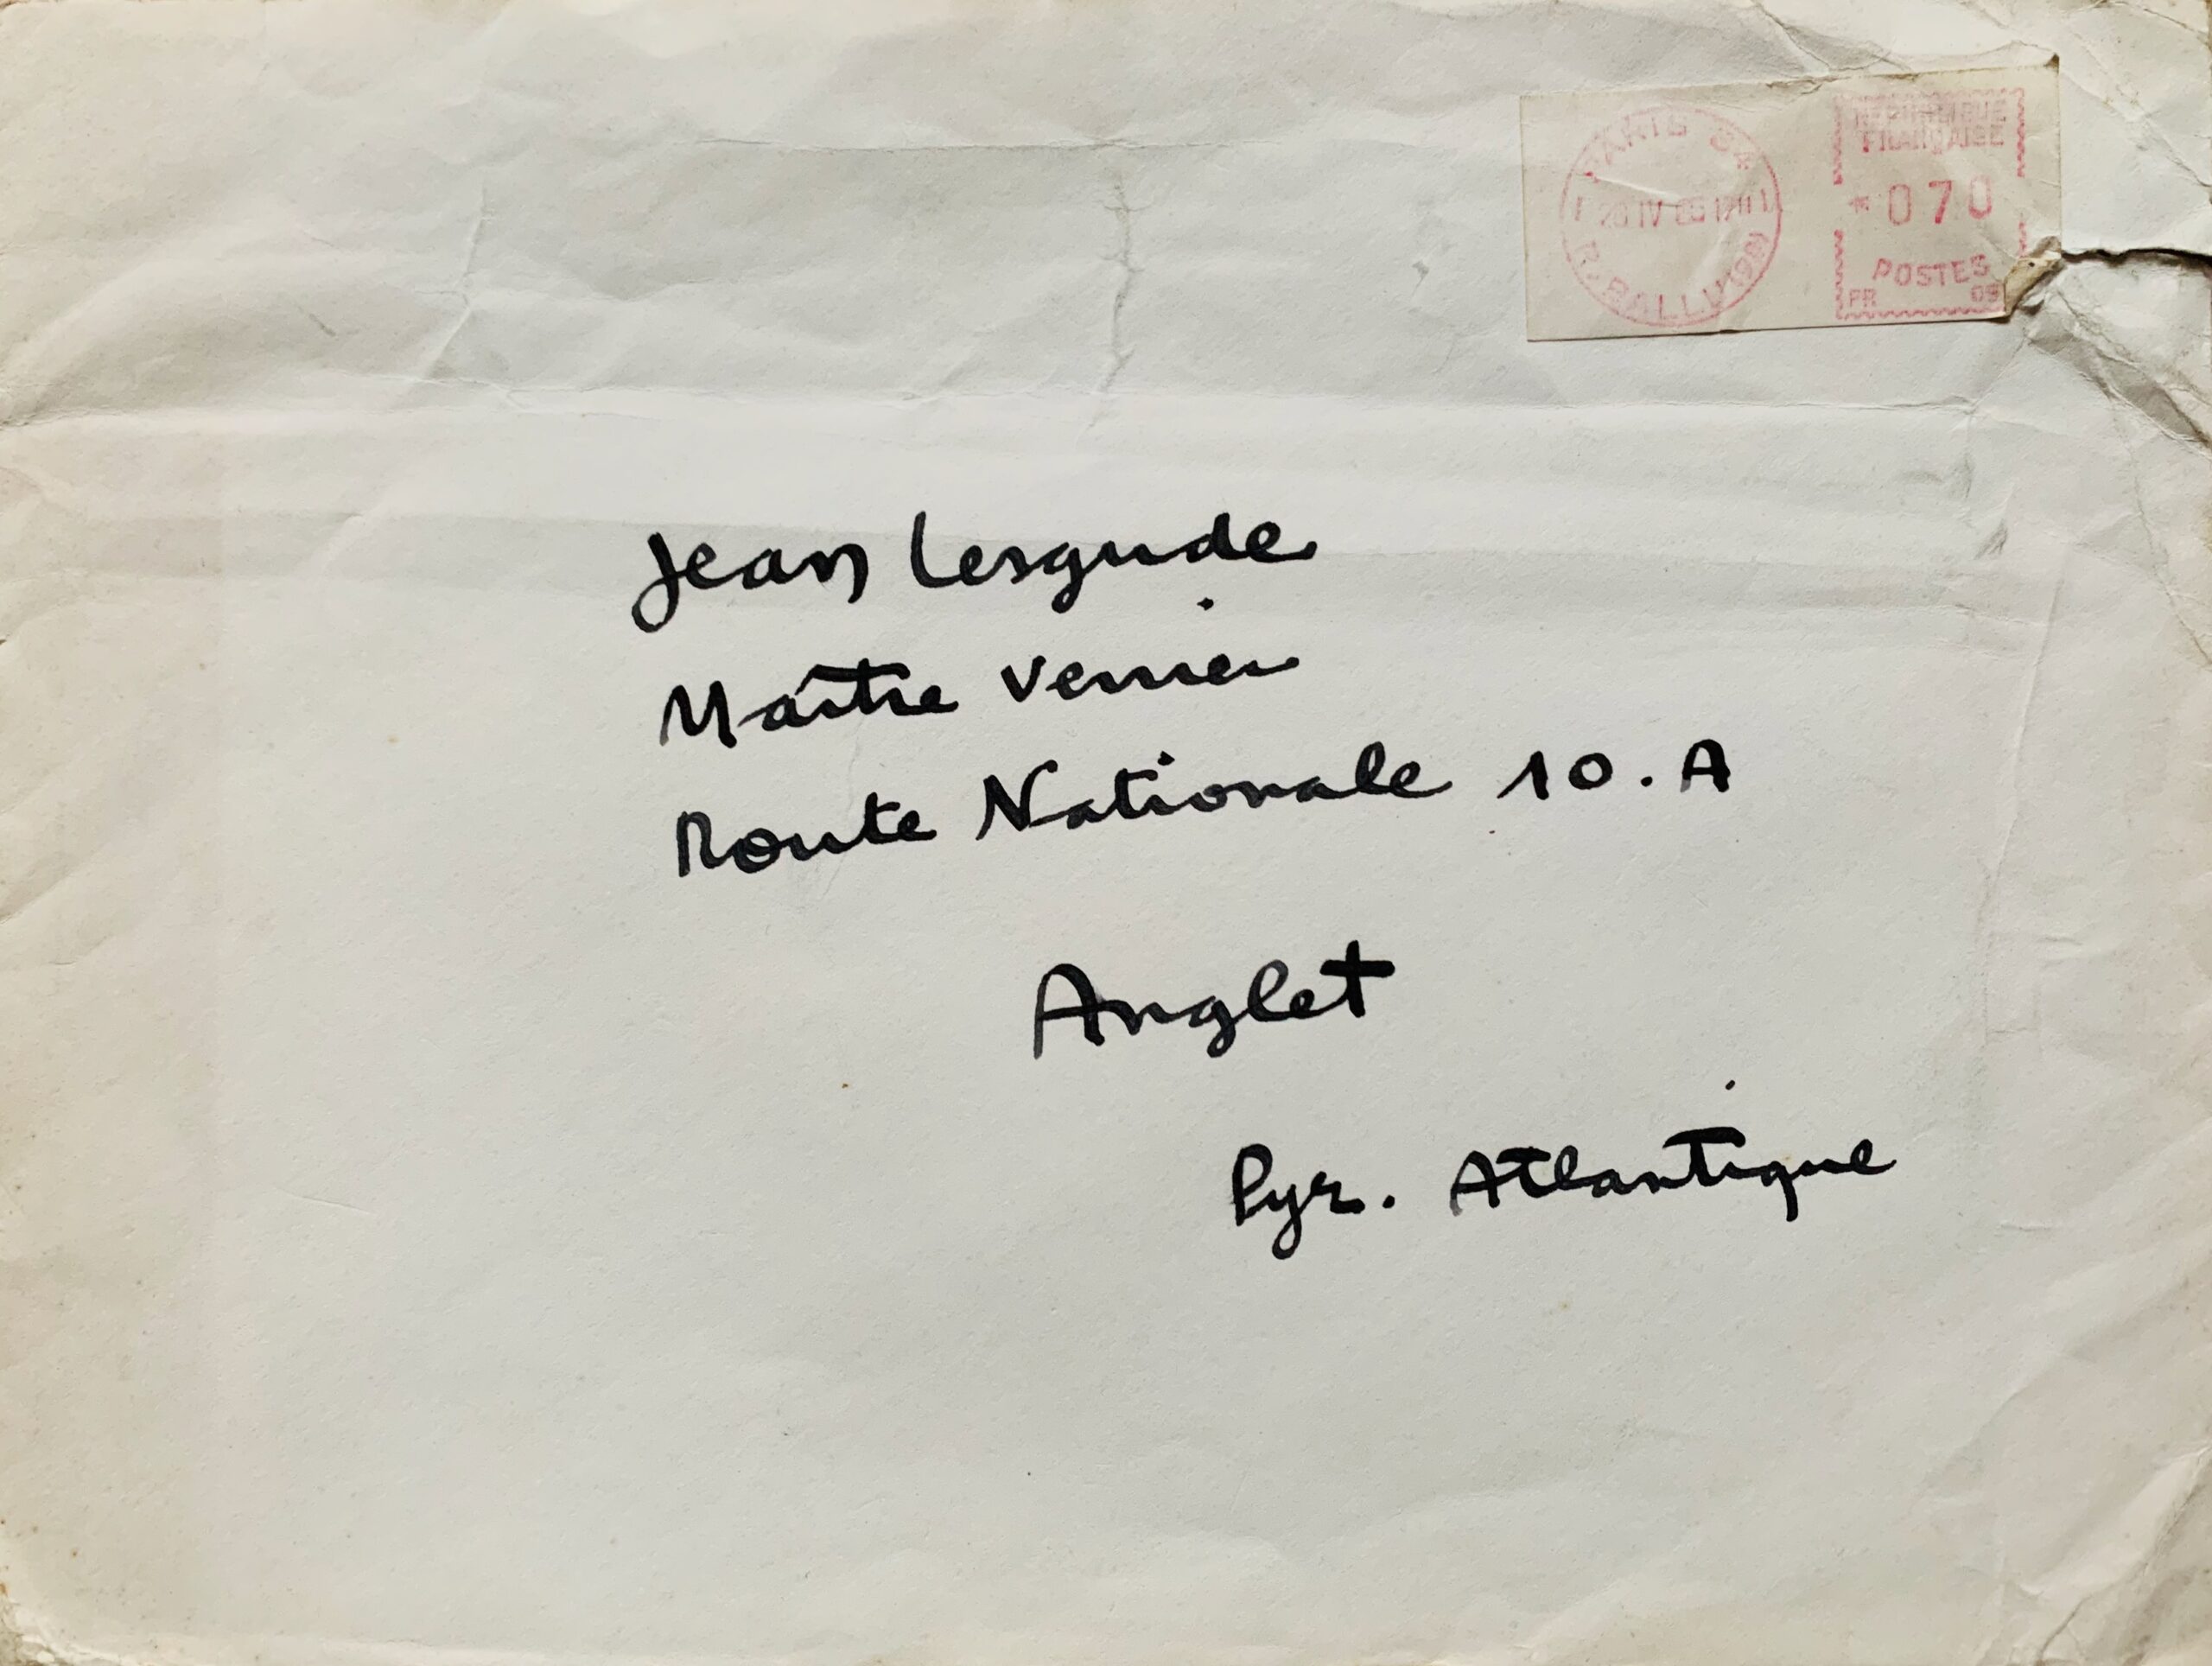 PARIS
R. BALLU (9E)
REPUBLIQUE
FRANÇAISE
070
POSTES
PR 09
Jean Lesgude
Maître verrier
Route Nationale 10. A
Anglet
Pyr. Atlantique